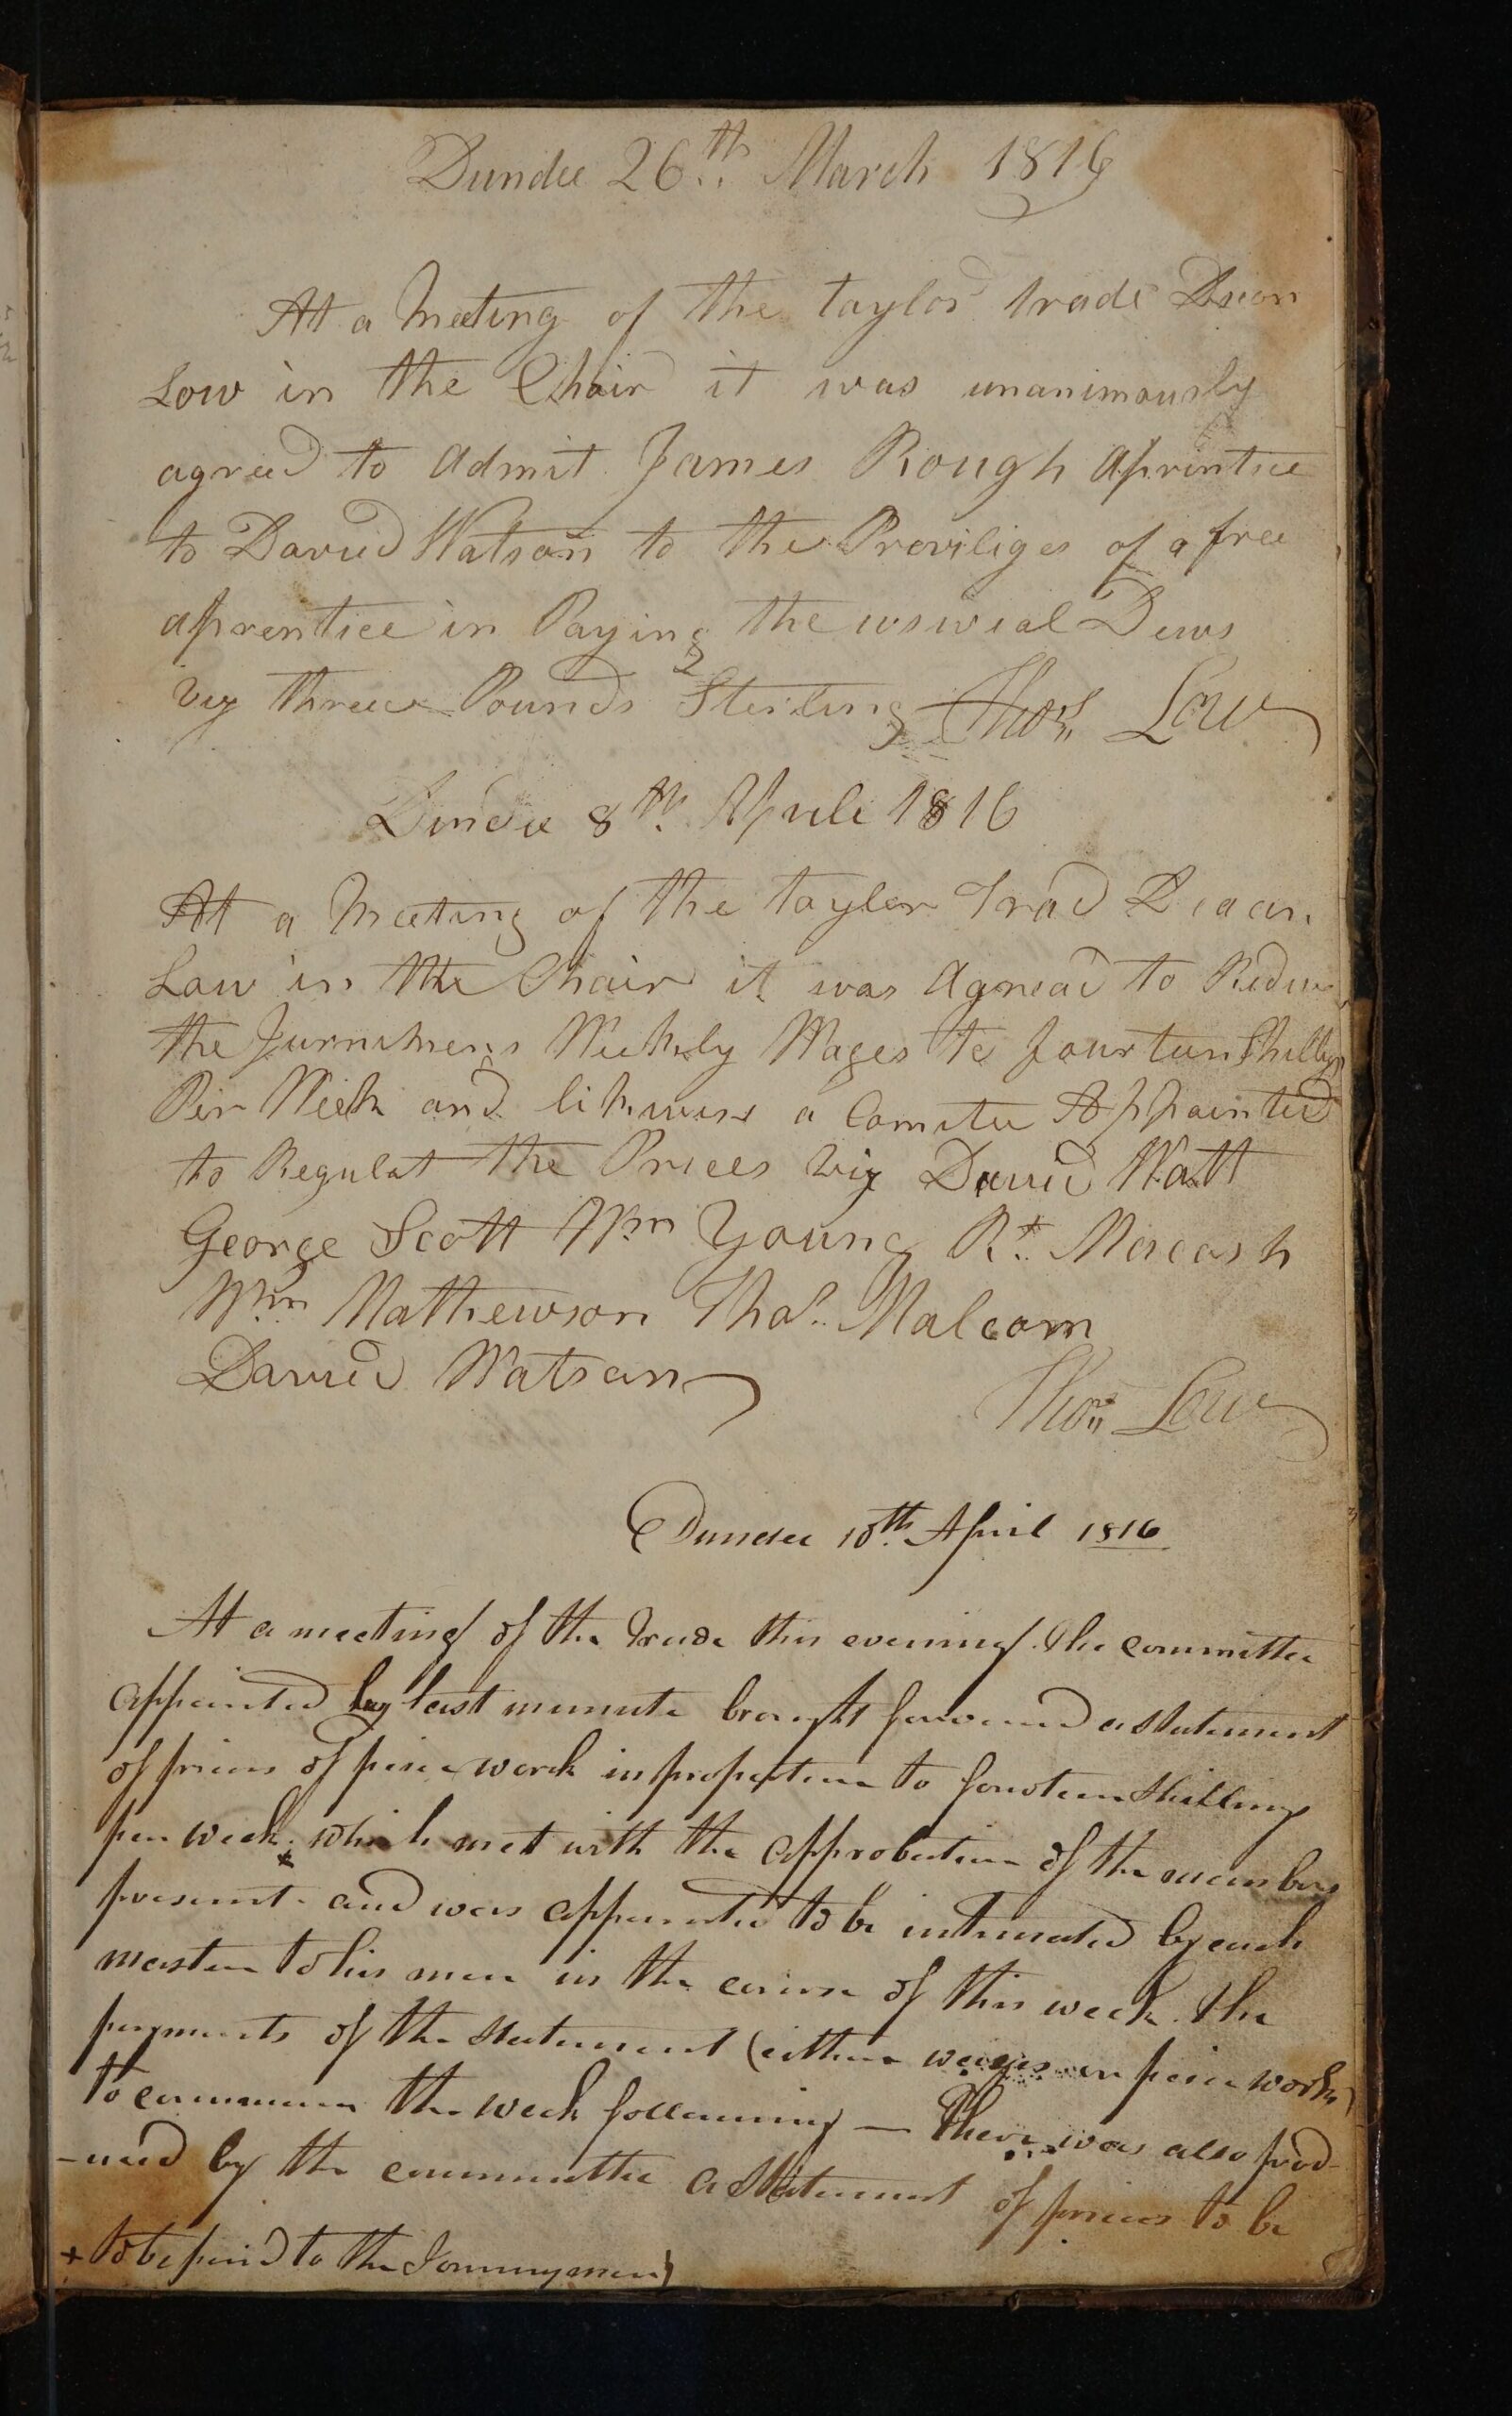 Dundee 26th March 1816
At a Meeting of the taylor trade Deion
Low in the Chair it was unanimously
agreed to Admit James Rough Aprintice
to David Watson to the Proviliges of a free
aprentice in Paying the uswial Dews
viz three Pounds Sterling Thos Low
Dundee 8th Aprile 1816
At a Meeting of the taylor Trad Deaan
Low in the Chair it was Agread to Reduce
the Jurnimens Weekly Wages to fourteen Shillings
Per Week and likewise a Comitee Appointed
to Regulat the Prices viz David Watt
George Scott Wm Young Rt Macash
Wm Mathewson Thos Malcom
David Watson
Thos Low
Dundee 10th April 1816
At a meeting of the Trade this evening. The committee
appointed by last minute brought forward a statement
of prices of piece work in proportion to fourteen Shillings
per week + which met with the approbation of the members
present and was appointed to be intimated by each
master to his men in the course of this week. The
payments of the statement (either wages or piece work)
to commence the week following — There was also prod-
-uced by the committee a statement of prices to be
+ to be paid to the Journeymen